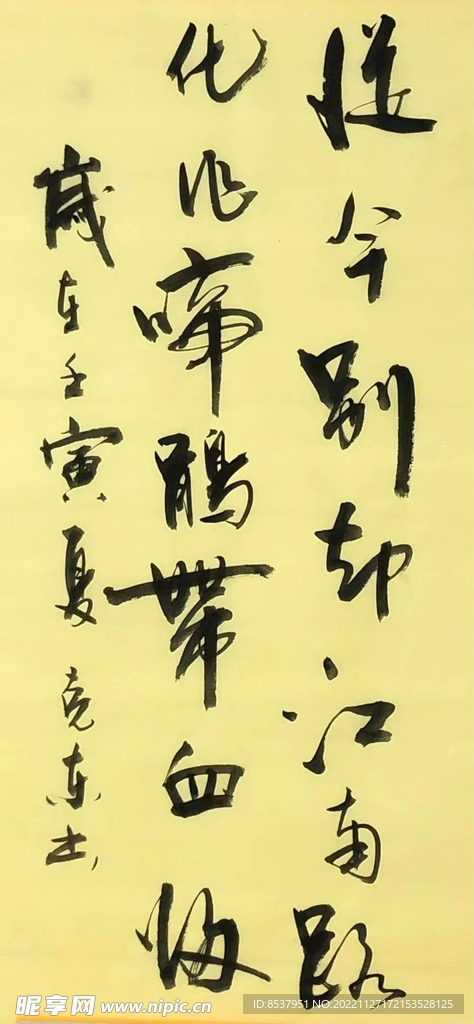 從今别却江南路
化作啼鵑帶血悔
歲在壬寅夏 克東书
昵享网 www.nipic.cn
ID:8537951 NO:20221127172153528125